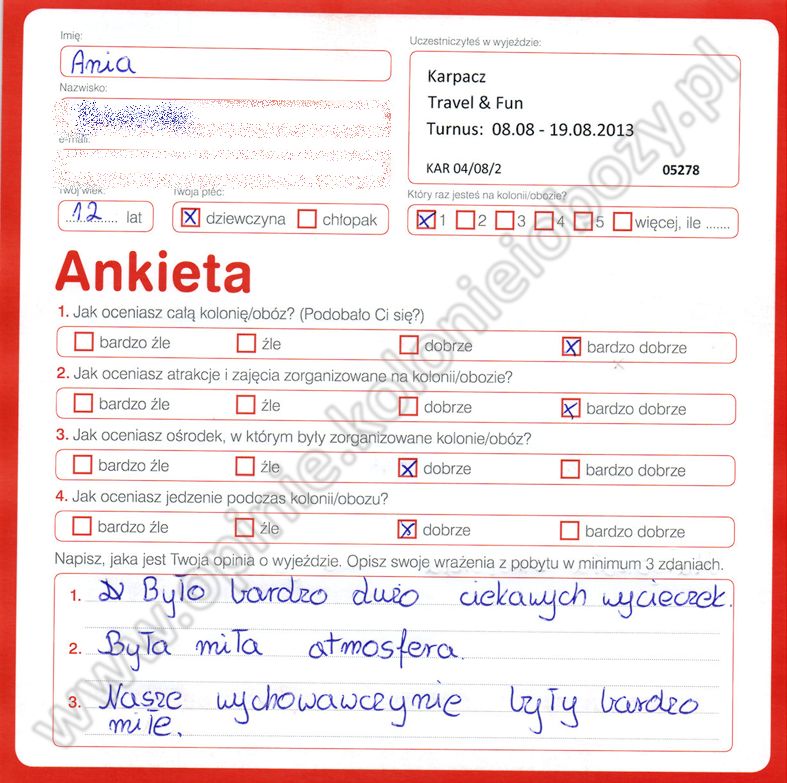 Imię:
Ania
Uczestniczyłeś w wyjeździe:
Karpacz
Travel & Fun
Turnus: 08.08 - 19.08.2013
KAR 04/08/2 05278
Nazwisko:
e-mail:
Twój wiek:
12 lat
Twoja płeć:
dziewczyna chłopak
Który raz jesteś na kolonii/obozie?
1 2 3 4 5 więcej, ile .......
Ankieta
1. Jak oceniasz całą kolonię/obóz? (Podobało Ci się?)
bardzo źle źle dobrze bardzo dobrze
2. Jak oceniasz atrakcje i zajęcia zorganizowane na kolonii/obozie?
bardzo źle źle dobrze bardzo dobrze
3. Jak oceniasz ośrodek, w którym były zorganizowane kolonie/obóz?
bardzo źle źle dobrze bardzo dobrze
4. Jak oceniasz jedzenie podczas kolonii/obozu?
bardzo źle źle dobrze bardzo dobrze
Napisz, jaka jest Twoja opinia o wyjeździe. Opisz swoje wrażenia z pobytu w minimum 3 zdaniach.
1. Było bardzo dużo ciekawych wycieczek.
2. Była miła atmosfera.
3. Nasze wychowawczynie były bardzo
miłe.
www.opinie.kolonieiobozy.pl